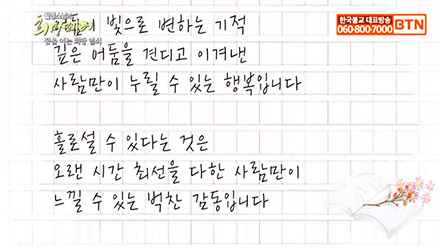 빛으로 변하는 기적
깊은 어둠을 견디고 이겨낸
사람만이 누릴 수 있는 행복입니다
홀로설 수 있다는 것은
오랜 시간 최선을 다한 사람만이
느낄 수 있는 벅찬 감동입니다
한국불교 대표방송
060-800-7000
BTN